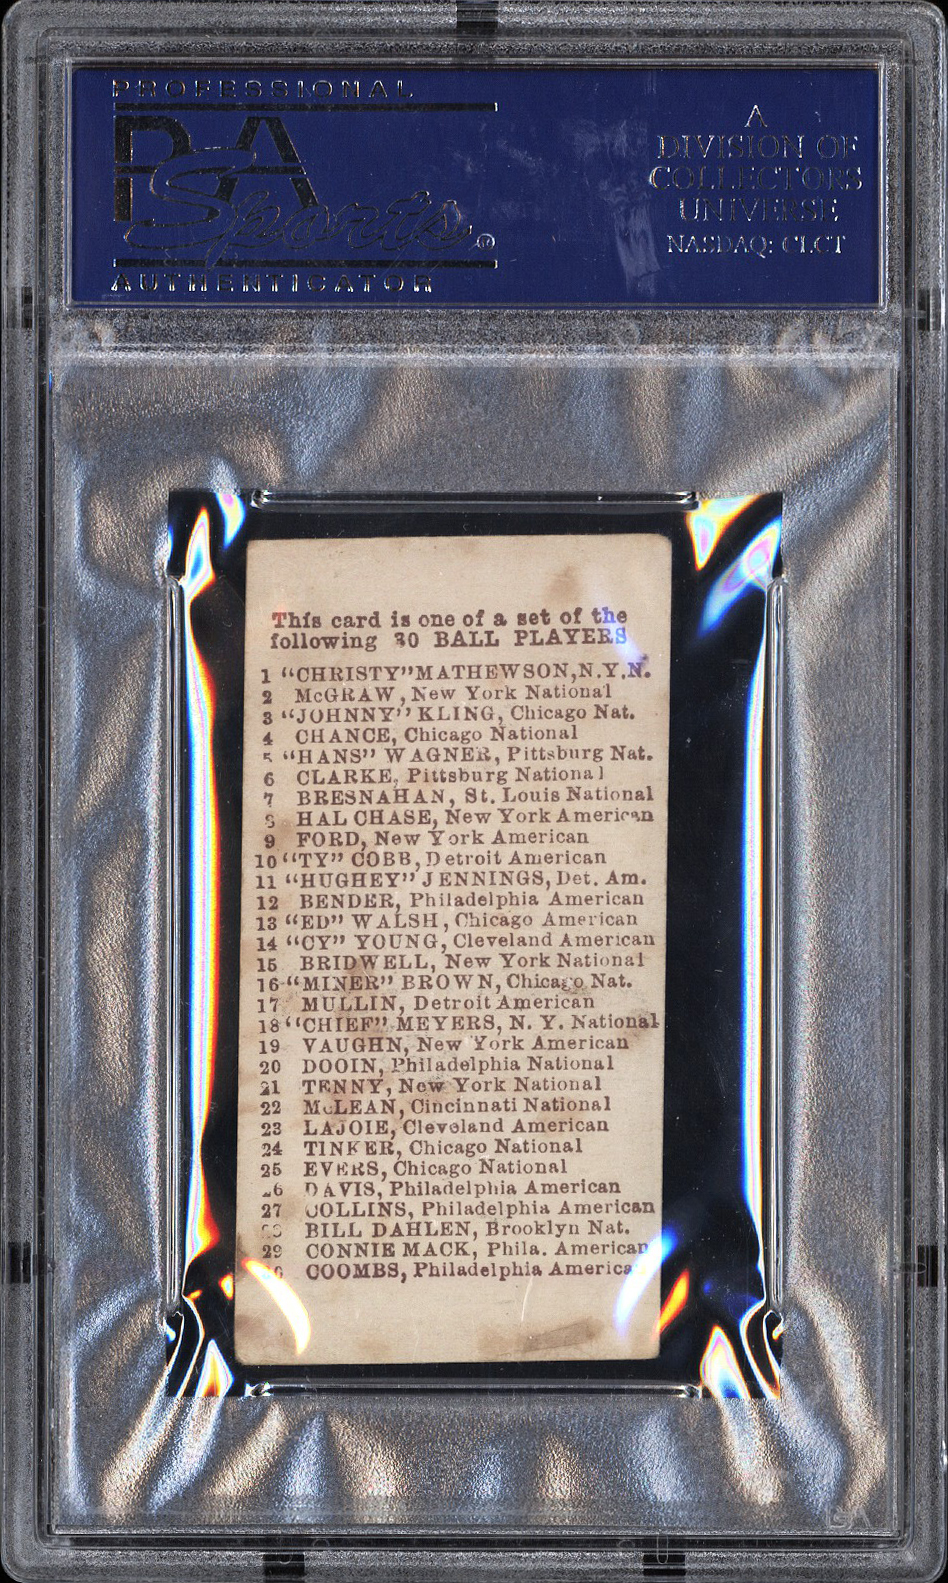 PROFESSIONAL
PSA
Sports®
AUTHENTICATOR
A
DIVISION OF
COLLECTORS
UNIVERSE
NASDAQ: CLCT
This card is one of a set of the
following 30 BALL PLAYERS
1 "CHRISTY" MATHEWSON, N.Y.N.
2 McGRAW, New York National
3 "JOHNNY" KLING, Chicago Nat.
4 CHANCE, Chicago National
5 "HANS" WAGNER, Pittsburg Nat.
6 CLARKE, Pittsburg National
7 BRESNAHAN, St. Louis National
8 HAL CHASE, New York American
9 FORD, New York American
10 "TY" COBB, Detroit American
11 "HUGHEY" JENNINGS, Det. Am.
12 BENDER, Philadelphia American
13 "ED" WALSH, Chicago American
14 "CY" YOUNG, Cleveland American
15 BRIDWELL, New York National
16 "MINER" BROWN, Chicago Nat.
17 MULLIN, Detroit American
18 "CHIEF" MEYERS, N. Y. National
19 VAUGHN, New York American
20 DOOIN, Philadelphia National
21 TENNY, New York National
22 McLEAN, Cincinnati National
23 LAJOIE, Cleveland American
24 TINKER, Chicago National
25 EVERS, Chicago National
26 DAVIS, Philadelphia American
27 COLLINS, Philadelphia American
BILL DAHLEN, Brooklyn Nat.
29 CONNIE MACK, Phila. American
COOMBS, Philadelphia America